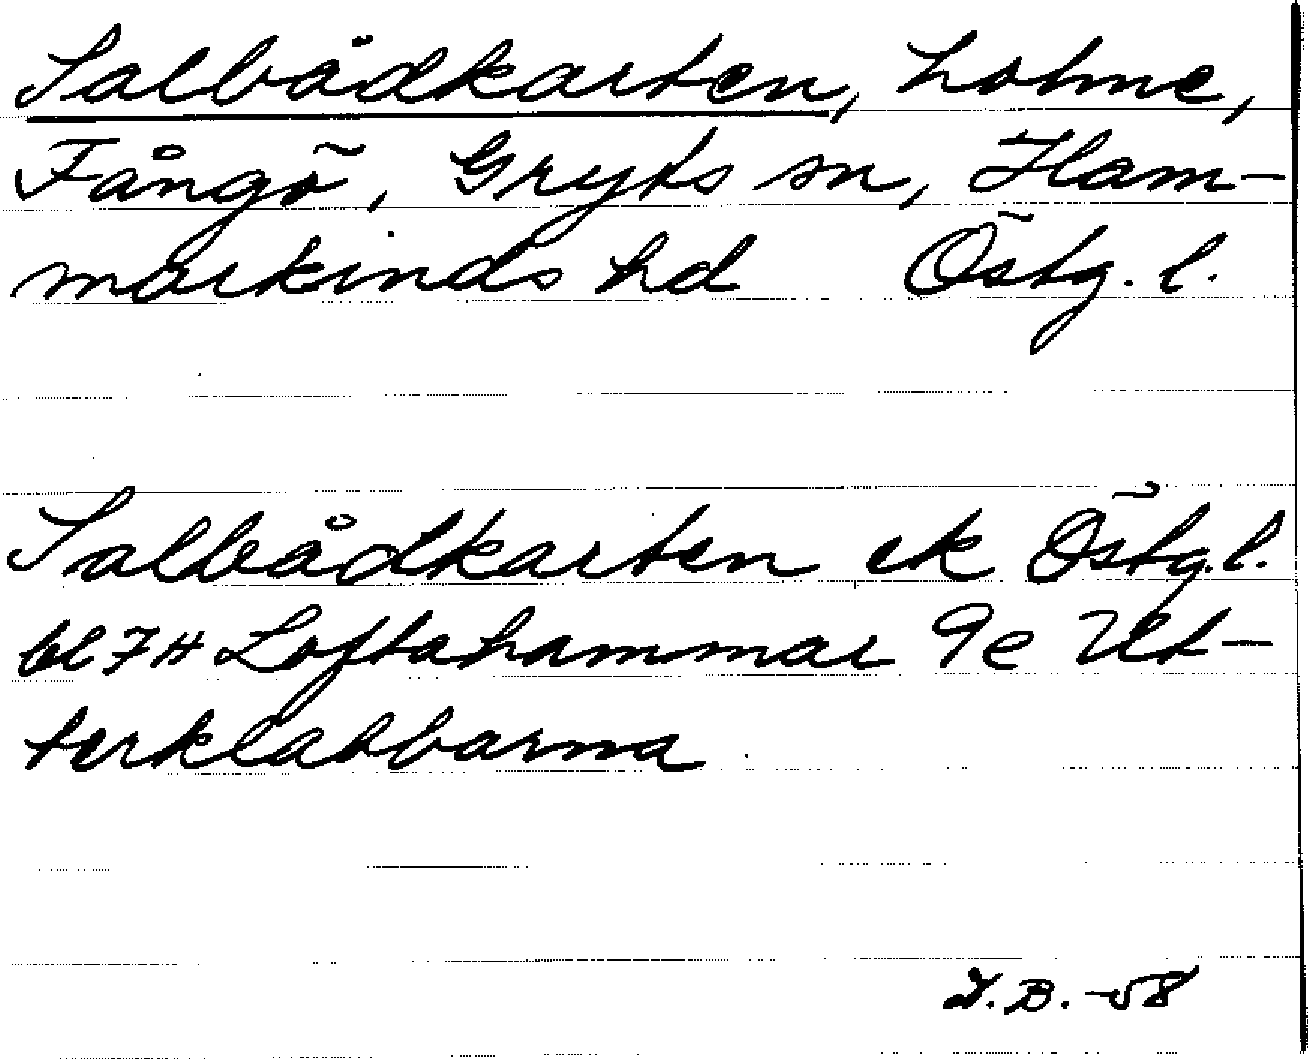 Salbådkarten, holme,
Fångö, Gryts sn, Ham-
markinds hd Östg. l.
Salbådkarten ek Östg. l.
bl 7H Loftahammar 9e Ut-
terklabbarna
I.B. -58